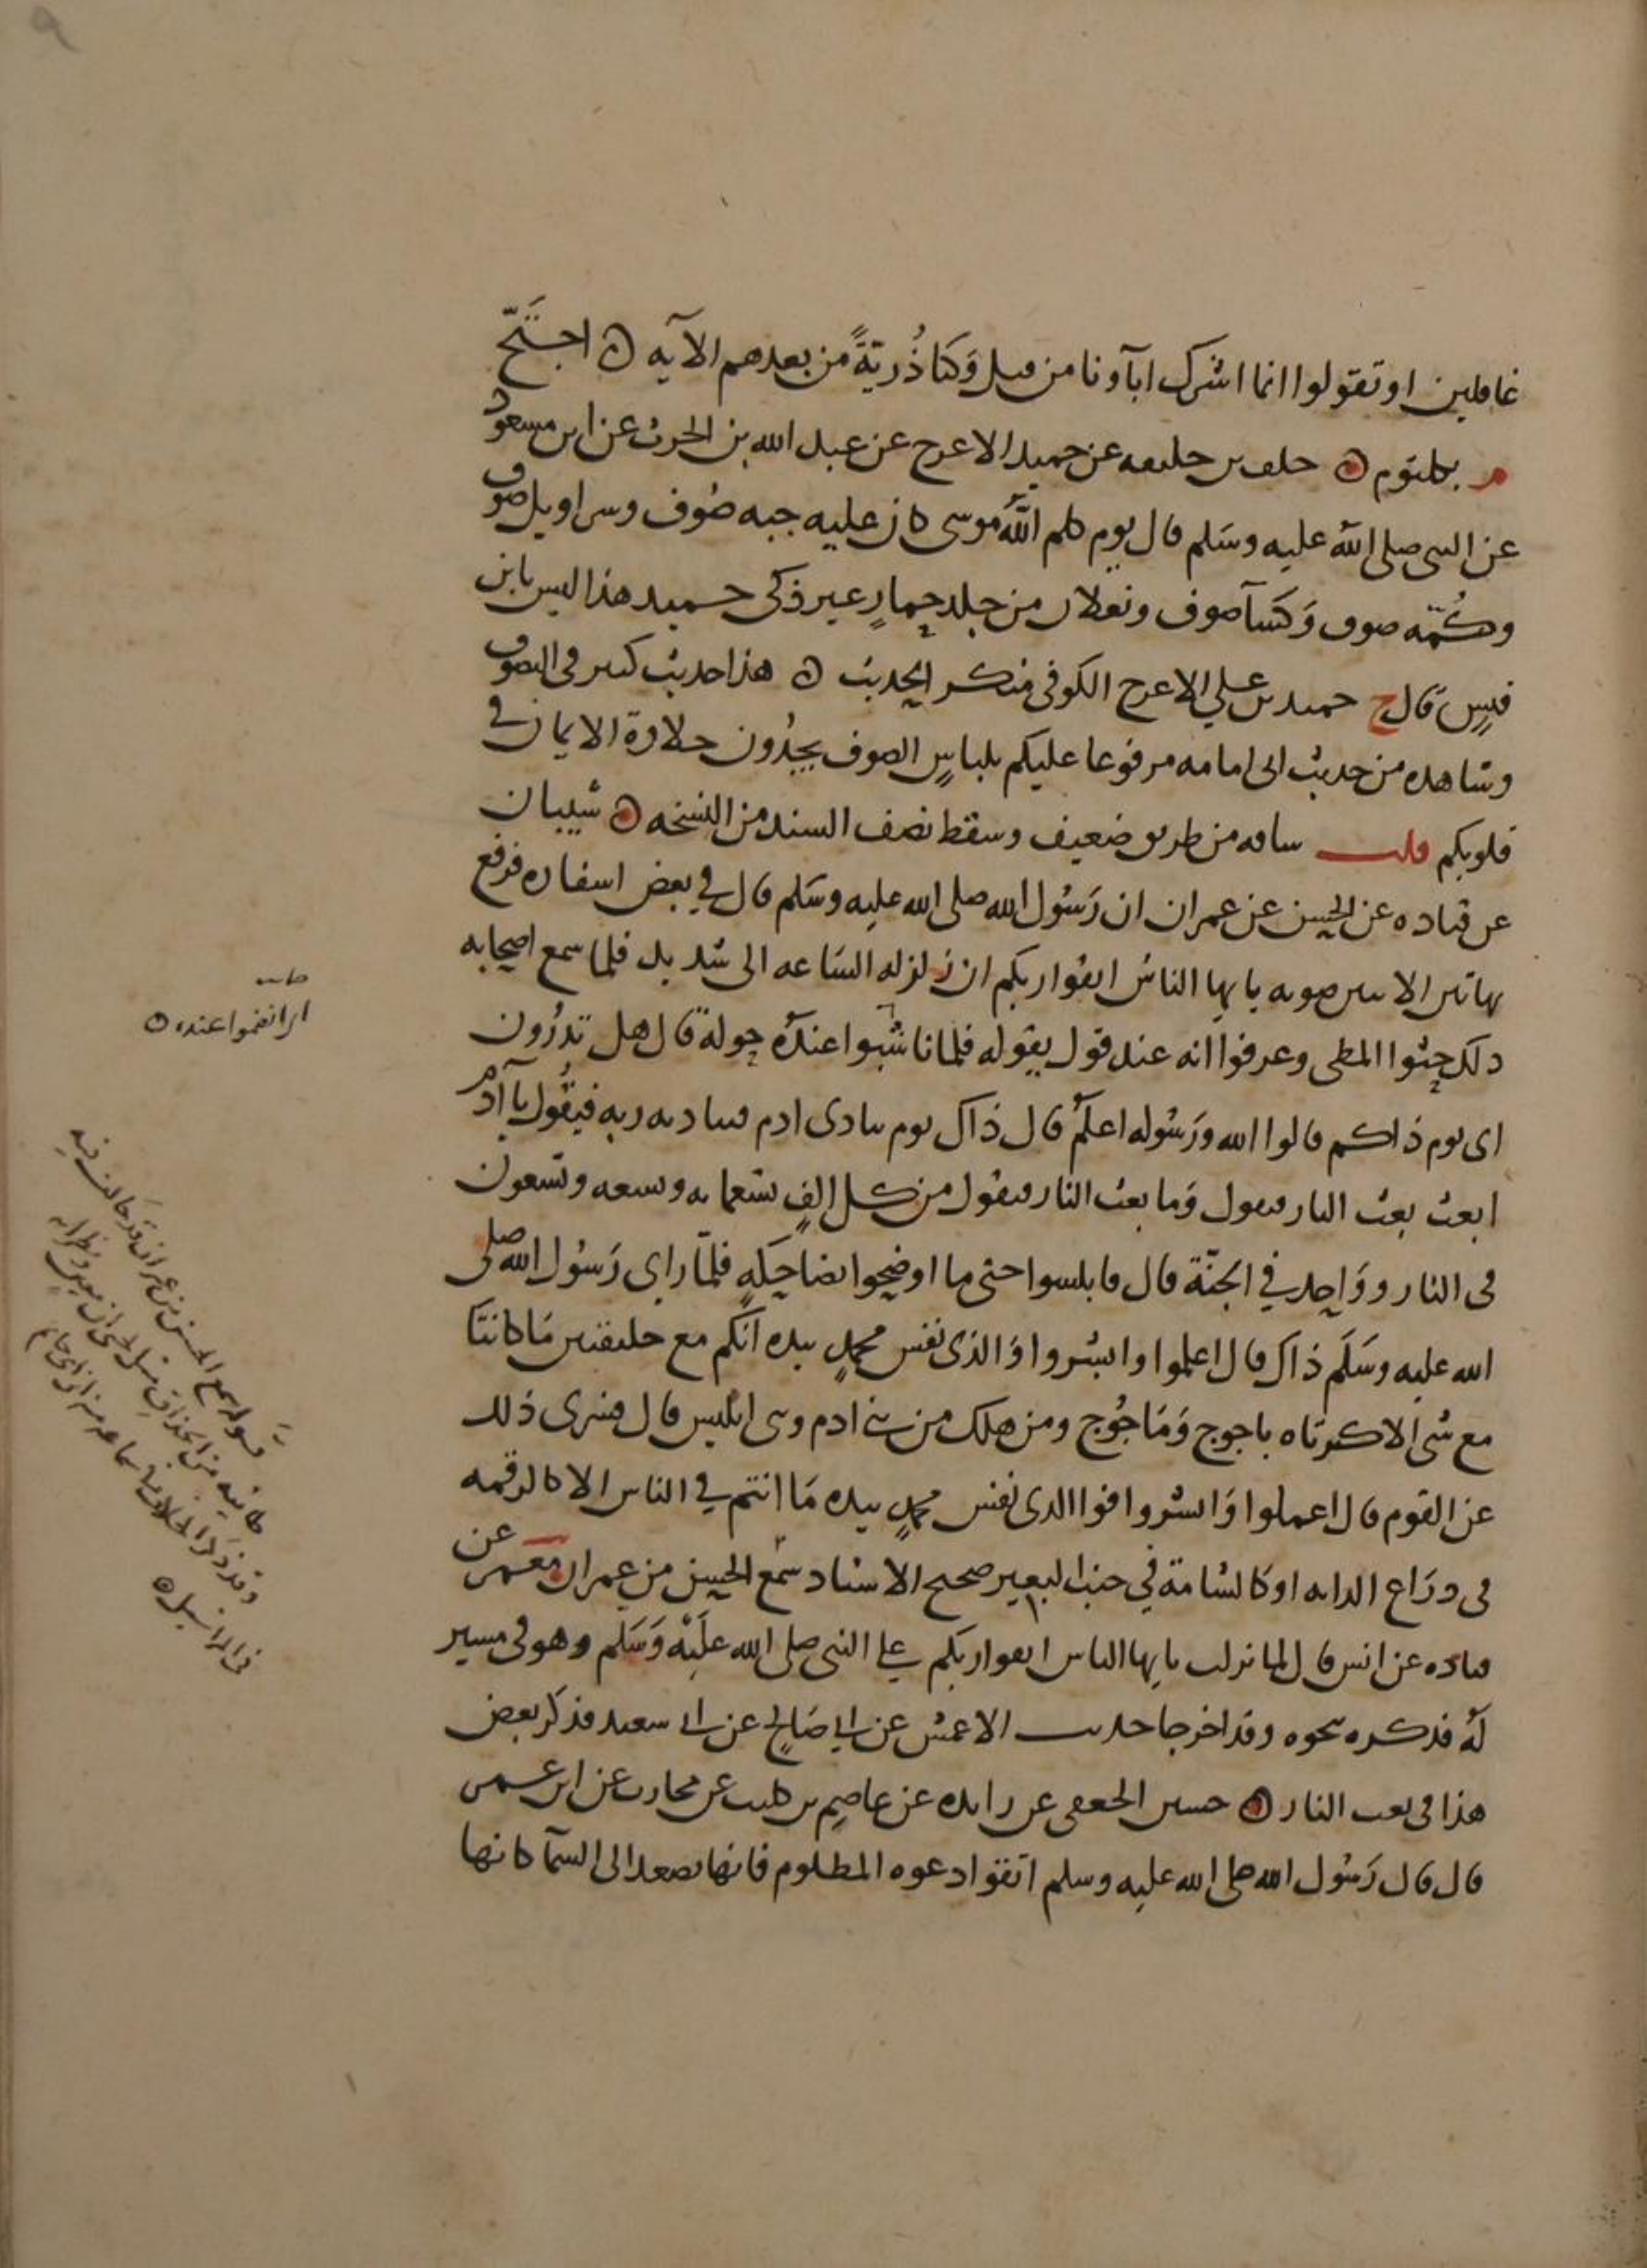 غافلين او تقولوا انما اشرك اباونا من قبل وَكنَا ذُريَةً من بعدهم الآيه ه احتَجّ
م بكلثوم ه خلف بن خليفه عن حميد الاعرج عن عبد الله بن الحرث عن ابن مسعود
عن النبي صلى الله عليه وسَلم قال يوم كلم اللهُ موسى كان عليه جبه صُوف وسراويل صوف
وكُمّه صوف وَكسَآ صوف ونعلان من جلد حمارٍ غير ذكى حميد هذا ليس بابن
قيسٍ قال خ حميد بن علي الاعرج الكوفي منكر الحديث ه هذا حديث كبير في التصوف
وشاهده من حديث ابي امامه مرفوعا عليكم بلباسِ الصوف يجِدُون حلاوة الايمان في
قلوبكم قلت ساقه من طريق ضعيف وسقط نصف السند من النسخه ه شيبان
عن قتاده عن الحسن عن عمران ان رَسُول الله صلى الله عليه وسَلم قال في بعض اسفاره فرفع
بهاتين الايتين صوته يا يها الناسُ اتقوا ربكم ان زلزله السَاعه الى شديد فلما سمع اصحابه
ذلك حثوا المطي وعرفوا انه عند قول يقوله فلما تاشبوا عندهُ حولهُ قال هل تدرُون
اي يوم ذاكم قالوا الله ورَسُوله اعلمُ قال ذاك يوم ينادى ادم فيناديه ربه فيقُول يا آدمُ
ابعث بعث النار فيقول وَما بعث النار فيقول من كل الفٍ تسعمايه وتسعه وتسعون
في النار ووَاحِد في الجنّة قال فابلسوا حتى ما اوضحوا بضاحكهٍ فلمّا راي رَسُول الله صلى
الله عليه وسَلَم ذاك قال اعلموا وابشروا وَالذي نفس محمدٍ بيده انكم مع خليقتين مَا كانتا
مع شى الا كثرتاه ياجوج وَمَاجُوج ومن هلك من بني ادم وبني ابليس قال فسرى ذلك
عن القوم قال اعملوا وَابشروا فوالذي نفس محمدٍ بيده مَا انتم في الناس الا كالرقمه
في ذرَاع الدابه او كالشامة في جنب البعير صحيح الاسناد سَمع الحسن من عمران معمر عن
قتاده عن انس قال لما نزلت يا يها الناس اتقوا ربكم على النبي صلى الله علَيْه وَسَلم وهو في مسير
لهُ فذكره نحوه وقد اخرجا حديث الاعمش عن ابي صَالح عن ابي سعيد فذكر بعض
هذا في بعث النار ه حسين الجعفي عن زايده عن عاصِم بن كليب عن محارب عن ابن عمر
قال قال رَسُول الله صلى الله عليه وسلم اتقوا دعوه المظلوم فانها تصعد الى السمآ كانها
اي انضموا عنده ه
قوله سمع الحسن من عمران قد خالف فيه